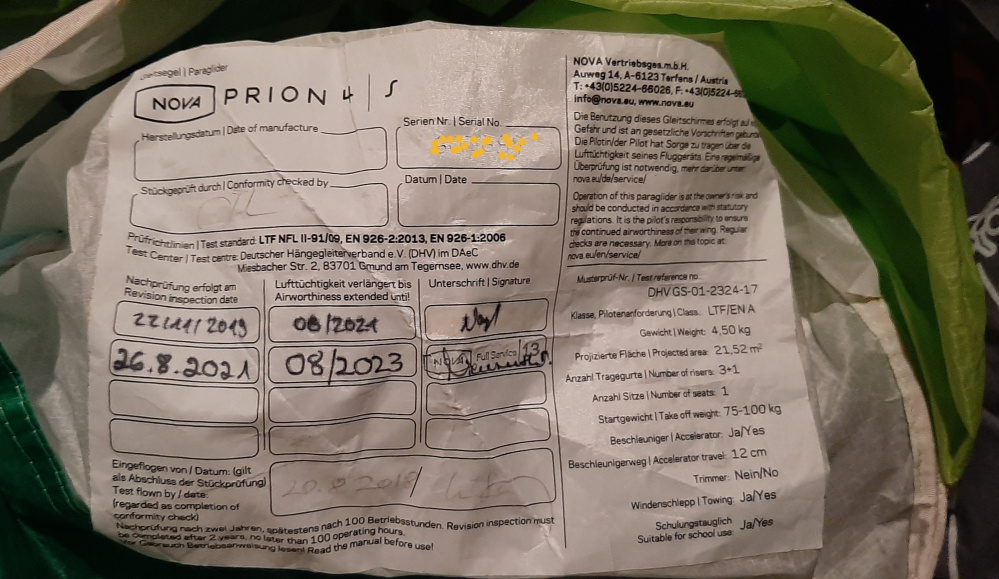 Gleitsegel | Paraglider
NOVA PRION 4 | S
Herstellungsdatum | Date of manufacture
Serien Nr. | Serial No.
Stückgeprüft durch | Conformity checked by
Datum | Date
Prüfrichtlinien | Test standard: LTF NFL II-91/09, EN 926-2:2013, EN 926-1:2006
Test Center | Test centre: Deutscher Hängegleiterverband e.V. (DHV) im DAeC
Miesbacher Str. 2, 83701 Gmund am Tegernsee, www.dhv.de
Nachprüfung erfolgt am
Revision inspection date
Lufttüchtigkeit verlängert bis
Airworthiness extended until
Unterschrift | Signature
22/11/2019 08/2021
26.8.2021 08/2023 NOVA Full Service 13
Eingeflogen von / Datum: (gilt
als Abschluss der Stückprüfung)
Test flown by / date:
(regarded as completion of
conformity check)
20.8.2018 /
Nachprüfung nach zwei Jahren, spätestens nach 100 Betriebsstunden. Revision inspection must
be completed after 2 years, no later than 100 operating hours.
Vor Gebrauch Betriebsanweisung lesen! Read the manual before use!
NOVA Vertriebsges.m.b.H.
Auweg 14, A-6123 Terfens / Austria
T: +43(0)5224-66026, F: +43(0)5224-66
info@nova.eu, www.nova.eu
Die Benutzung dieses Gleitschirmes erfolgt auf
Gefahr und ist an gesetzliche Vorschriften
Die Pilotin/der Pilot hat Sorge zu tragen über die
Lufttüchtigkeit seines Fluggeräts. Eine regelmäßige
Überprüfung ist notwendig, mehr darüber unter:
nova.eu/de/service/
Operation of this paraglider is at the owner's risk and
should be conducted in accordance with statutory
regulations. It is the pilot's responsibility to ensure
the continued airworthiness of their wing. Regular
checks are necessary. More on this topic at:
nova.eu/en/service/
Musterprüf-Nr. | Test reference no.:
DHV GS-01-2324-17
Klasse, Pilotenanforderung | Class.: LTF/EN A
Gewicht | Weight: 4,50 kg
Projizierte Fläche | Projected area: 21,52 m²
Anzahl Tragegurte | Number of risers: 3+1
Anzahl Sitze | Number of seats: 1
Startgewicht | Take off weight: 75-100 kg
Beschleuniger | Accelerator: Ja/Yes
Beschleunigerweg | Accelerator travel: 12 cm
Trimmer: Nein/No
Windenschlepp | Towing: Ja/Yes
Schulungstauglich
Suitable for school use: Ja/Yes